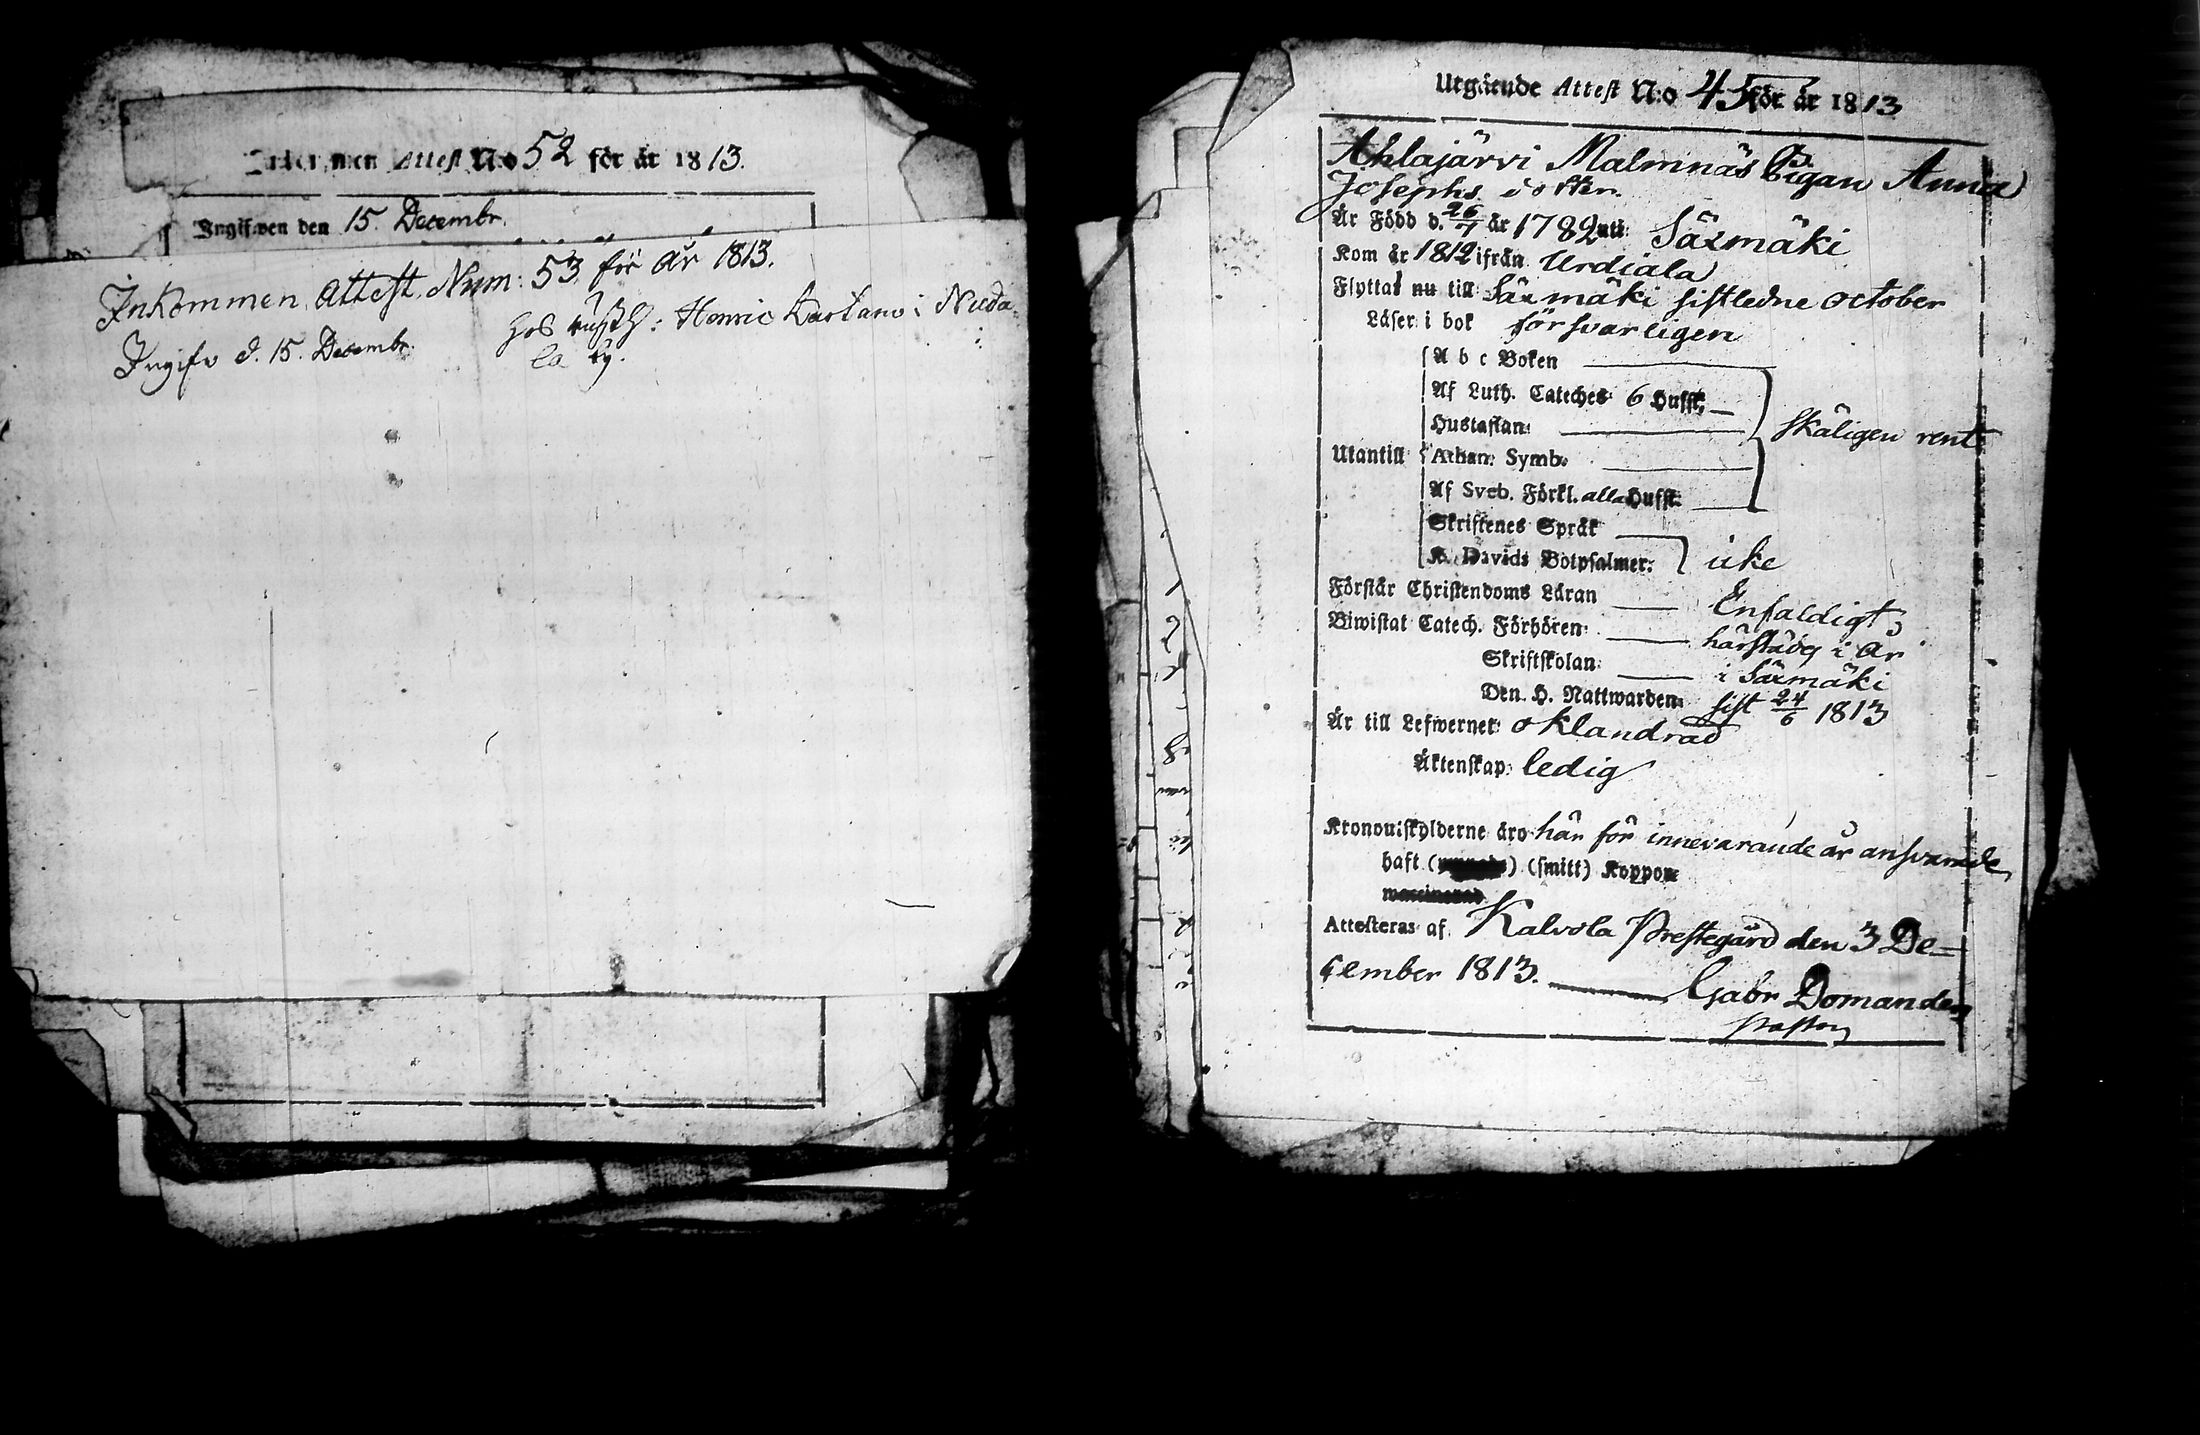 Attest N:o 52 för år 1813.
Ingifwen den 15 Decembr.
Inkommen Attest Num: 53 för År 1813.
Ingifv d. 15. Decembr.
hos rusth: Henric Kartano i Nuda-
la by.
Utgående Attest N:o 45 för år 1813
Ahlajärvi Malmnäs Pigan Anna
Josephs dotter.
Är Född d. 26/7 år 1782 uti Säxmäki
Kom år 1812 ifrån Urdiala
Flyttat nu till Säxmäki sistledne October
Läser i bok försvarligen
A b c Boken
Af Luth. Cateches 6 Hufst.
Hustaflan: skäligen rent
Utantill Athan: Symb.
Af Sveb. Förkl. alla Hufst.
Skriftenes Språk
K. Davids Botpsalmer: icke
Förstår Christendoms Läran Enfaldigt
Biwistat Catech. Förhören: härstädes i år
Skriftskolan: i Säxmäki
Den H. Nattwarden: sist 24/6 1813
Är till Lefwernet: oklandrad
Äktenskap: ledig
Kronoutskylderne äro här för innevarande år ansvarade
haft () (smitt) Koppor
Attesteras af Kalvola Prestegård den 3 De-
cember 1813. Gabr Domander
Pastor